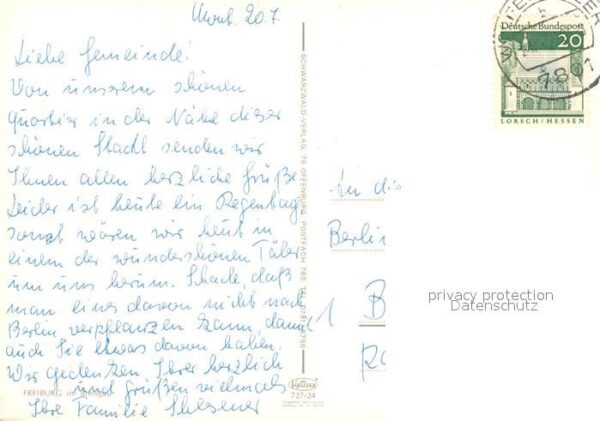 20.7.
Liebe Gemeinde!
Von unserem schönen
Quartier in der Nähe dieser
schönen Stadt senden wir
Ihnen allen herzliche Grüße
Leider ist heute ein Regentag
sonst wären wir heut in
einem der wunderschönen Täler
um uns herum. Schade, daß
man eines davon nicht nach
Berlin verpflanzen kann, damit
auch Sie etwas davon haben.
Wir gedenken Ihrer herzlich
und grüßen vielmals
Ihre Familie
FREIBURG im Breisgau
SCHWARZWALD-VERLAG, 76 OFFENBURG, POSTFACH 780, TEL.
KRÜGER
727/24
Deutsche Bundespost
20
LORSCH/HESSEN
78
1
An die
Berlin
1 B
privacy protection
Datenschutz